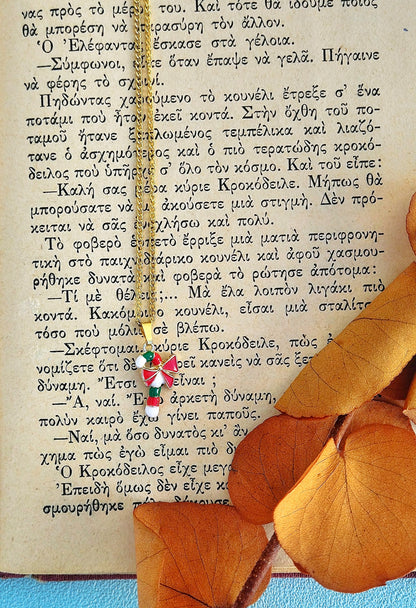 νας πρὸς τὸ μέρος του. Καὶ τότε θὰ ἰδοῦμε ποιὸς
θὰ μπορέση νὰ παρασύρη τὸν ἄλλον.
Ὁ Ἐλέφαντας ἔσκασε στὰ γέλοια.
—Σύμφωνοι, εἶπε ὅταν ἔπαψε νὰ γελᾶ. Πήγαινε
νὰ φέρης τὸ σχοινί.
Πηδώντας χαρούμενο τὸ κουνέλι ἔτρεξε σ' ἕνα
ποτάμι ποὺ ἦταν ἐκεῖ κοντά. Στὴν ὄχθη τοῦ πο-
ταμοῦ ἤτανε ξαπλωμένος τεμπέλικα καὶ λιαζό-
τανε ὁ ἀσχημότερος καὶ ὁ πιὸ τερατώδης κροκό-
δειλος ποὺ ὑπῆρχε σ' ὅλο τὸν κόσμο. Καὶ τοῦ εἶπε:
—Καλή σας μέρα κύριε Κροκόδειλε. Μήπως θὰ
μπορούσατε νὰ μὲ ἀκούσετε μιὰ στιγμή. Δὲν πρό-
κειται νὰ σᾶς ἐνοχλήσω καὶ πολύ.
Τὸ φοβερὸ ἑρπετὸ ἔρριξε μιὰ ματιὰ περιφρονη-
τικὴ στὸ παιχνιδιάρικο κουνέλι καὶ ἀφοῦ χασμου-
ρήθηκε δυνατὰ καὶ φοβερὰ τὸ ρώτησε ἀπότομα:
—Τί μὲ θέλεις;... Μὰ ἔλα λοιπὸν λιγάκι πιὸ
κοντά. Κακόμοιρο κουνέλι, εἶσαι μιὰ σταλίτσα
τόσο ποὺ μόλις σὲ βλέπω.
—Σκέφτομαι κύριε Κροκόδειλε, πὼς
νομίζετε ὅτι δὲ μπορεῖ κανεὶς νὰ σᾶς ξε
δύναμη. Ἔτσι εἶναι;
—Ἄ, ναί. Ἔχω ἀρκετὴ δύναμη,
πολὺν καιρὸ ἔχω γίνει παπούς.
—Ναί, μὰ ὅσο δυνατὸς κι' ἂν
χημα πὼς ἐγὼ εἶμαι πιὸ δυ
Ὁ Κροκόδειλος εἶχε μεγα
Ἐπειδὴ ὅμως δὲν εἶχε
σμουρήθηκε πιὸ